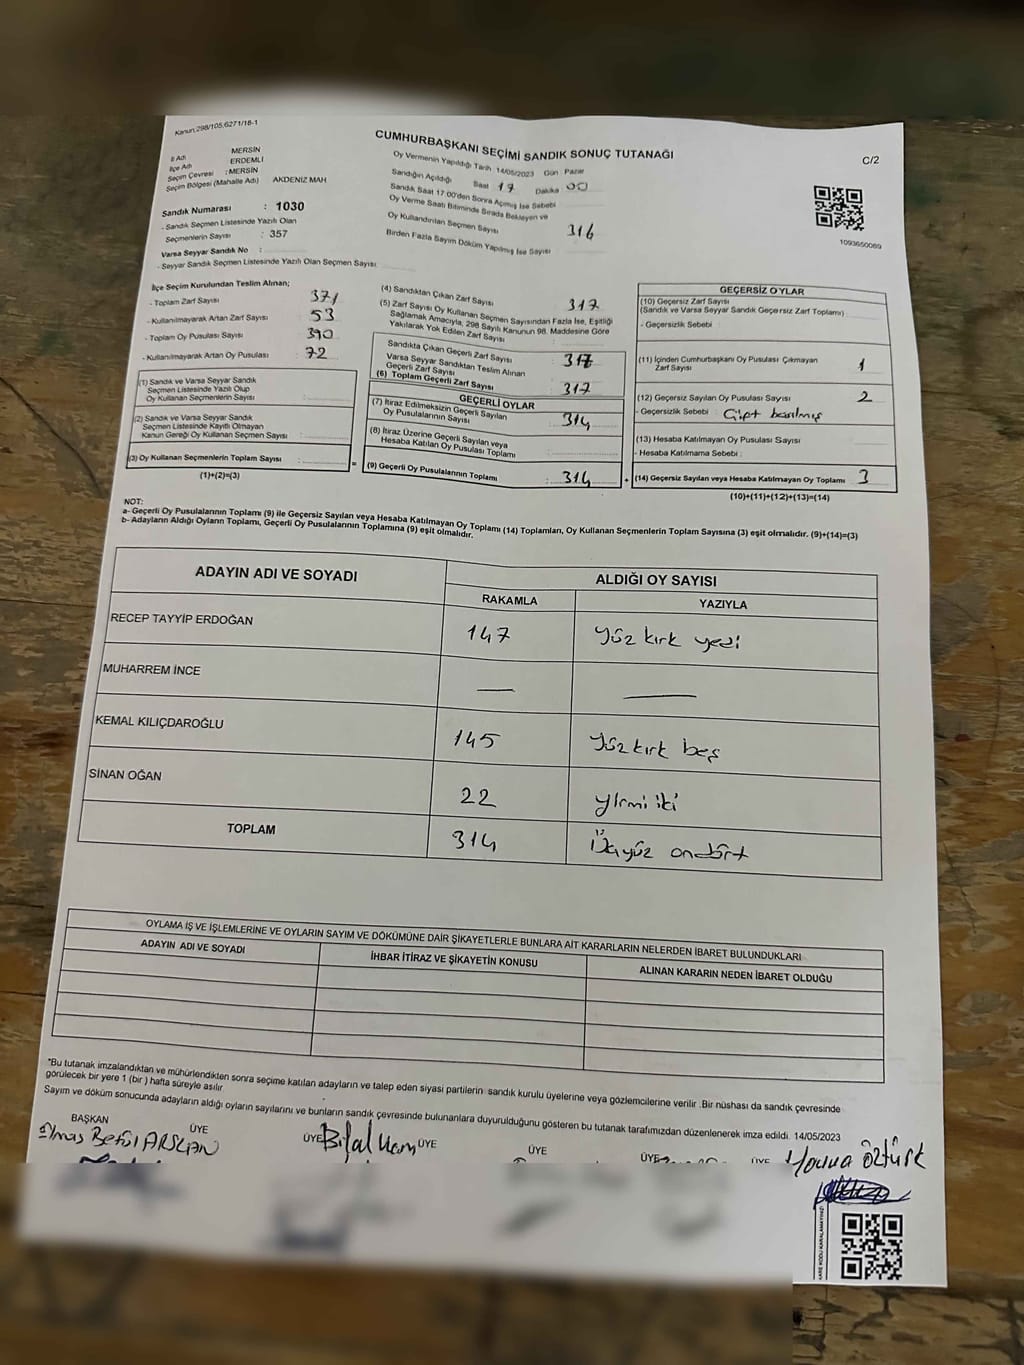 Kanun.298/105,6271/18-1
CUMHURBAŞKANI SEÇİMİ SANDIK SONUÇ TUTANAĞI
C/2
İl Adı MERSİN
İlçe Adı ERDEMLİ
Seçim Çevresi : MERSİN
Seçim Bölgesi (Mahalle Adı) AKDENİZ MAH
Oy Vermenin Yapıldığı Tarih 14/05/2023 Gün Pazar
Sandığın Açıldığı Saat 17 Dakika 00
Sandık Saat 17:00'den Sonra Açılmış İse Sebebi
Oy Verme Saati Bitiminde Sırada Bekleyen ve
Oy Kullandırılan Seçmen Sayısı 316
Birden Fazla Sayım Döküm Yapılmış İse Sayısı
1093650069
Sandık Numarası : 1030
- Sandık Seçmen Listesinde Yazılı Olan
Seçmenlerin Sayısı : 357
Varsa Seyyar Sandık No :
- Seyyar Sandık Seçmen Listesinde Yazılı Olan Seçmen Sayısı
İlçe Seçim Kurulundan Teslim Alınan;
- Toplam Zarf Sayısı 371
- Kullanılmayarak Artan Zarf Sayısı 53
- Toplam Oy Pusulası Sayısı 390
- Kullanılmayarak Artan Oy Pusulası 72
(1) Sandık ve Varsa Seyyar Sandık
Seçmen Listesinde Yazılı Olup
Oy Kullanan Seçmenlerin Sayısı :
(2) Sandık ve Varsa Seyyar Sandık
Seçmen Listesinde Kayıtlı Olmayan
Kanun Gereği Oy Kullanan Seçmen Sayısı :
(3) Oy Kullanan Seçmenlerin Toplam Sayısı :
(1)+(2)=(3)
(4) Sandıktan Çıkan Zarf Sayısı 317
(5) Zarf Sayısı Oy Kullanan Seçmen Sayısından Fazla İse, Eşitliği
Sağlamak Amacıyla, 298 Sayılı Kanunun 98. Maddesine Göre
Yakılarak Yok Edilen Zarf Sayısı :
Sandıkta Çıkan Geçerli Zarf Sayısı 317
Varsa Seyyar Sandıktan Teslim Alınan
Geçerli Zarf Sayısı
(6) Toplam Geçerli Zarf Sayısı 317
GEÇERLİ OYLAR
(7) İtiraz Edilmeksizin Geçerli Sayılan
Oy Pusulalarının Sayısı 314
(8) İtiraz Üzerine Geçerli Sayılan veya
Hesaba Katılan Oy Pusulası Toplamı
= (9) Geçerli Oy Pusulalarının Toplamı : 314 +
GEÇERSİZ OYLAR
(10) Geçersiz Zarf Sayısı
(Sandık ve Varsa Seyyar Sandık Geçersiz Zarf Toplamı)
- Geçersizlik Sebebi :
(11) İçinden Cumhurbaşkanı Oy Pusulası Çıkmayan
Zarf Sayısı 1
(12) Geçersiz Sayılan Oy Pusulası Sayısı 2
- Geçersizlik Sebebi : Çift basılmış
(13) Hesaba Katılmayan Oy Pusulası Sayısı
- Hesaba Katılmama Sebebi :
(14) Geçersiz Sayılan veya Hesaba Katılmayan Oy Toplamı 3
(10)+(11)+(12)+(13)=(14)
NOT:
a- Geçerli Oy Pusulalarının Toplamı (9) ile Geçersiz Sayılan veya Hesaba Katılmayan Oy Toplamı (14) Toplamları, Oy Kullanan Seçmenlerin Toplam Sayısına (3) eşit olmalıdır. (9)+(14)=(3)
b- Adayların Aldığı Oyların Toplamı, Geçerli Oy Pusulalarının Toplamına (9) eşit olmalıdır.
ADAYIN ADI VE SOYADI
ALDIĞI OY SAYISI
RAKAMLA YAZIYLA
RECEP TAYYİP ERDOĞAN 147 Yüz kırk yedi
MUHARREM İNCE — —
KEMAL KILIÇDAROĞLU 145 Yüz kırk beş
SİNAN OĞAN 22 yirmi iki
TOPLAM 314 Üçyüz ondört
OYLAMA İŞ VE İŞLEMLERİNE VE OYLARIN SAYIM VE DÖKÜMÜNE DAİR ŞİKAYETLERLE BUNLARA AİT KARARLARIN NELERDEN İBARET BULUNDUKLARI
ADAYIN ADI VE SOYADI İHBAR İTİRAZ VE ŞİKAYETİN KONUSU ALINAN KARARIN NEDEN İBARET OLDUĞU
*Bu tutanak imzalandıktan ve mühürlendikten sonra seçime katılan adayların ve talep eden siyasi partilerin sandık kurulu üyelerine veya gözlemcilerine verilir .Bir nüshası da sandık çevresinde
görülecek bir yere 1 (bir ) hafta süreyle asılır
Sayım ve döküm sonucunda adayların aldığı oyların sayılarını ve bunların sandık çevresinde bulunanlara duyurulduğunu gösteren bu tutanak tarafımızdan düzenlenerek imza edildi. 14/05/2023
BAŞKAN ÜYE ÜYE ÜYE ÜYE ÜYE ÜYE
Betül ARSLAN Bilal Öztürk